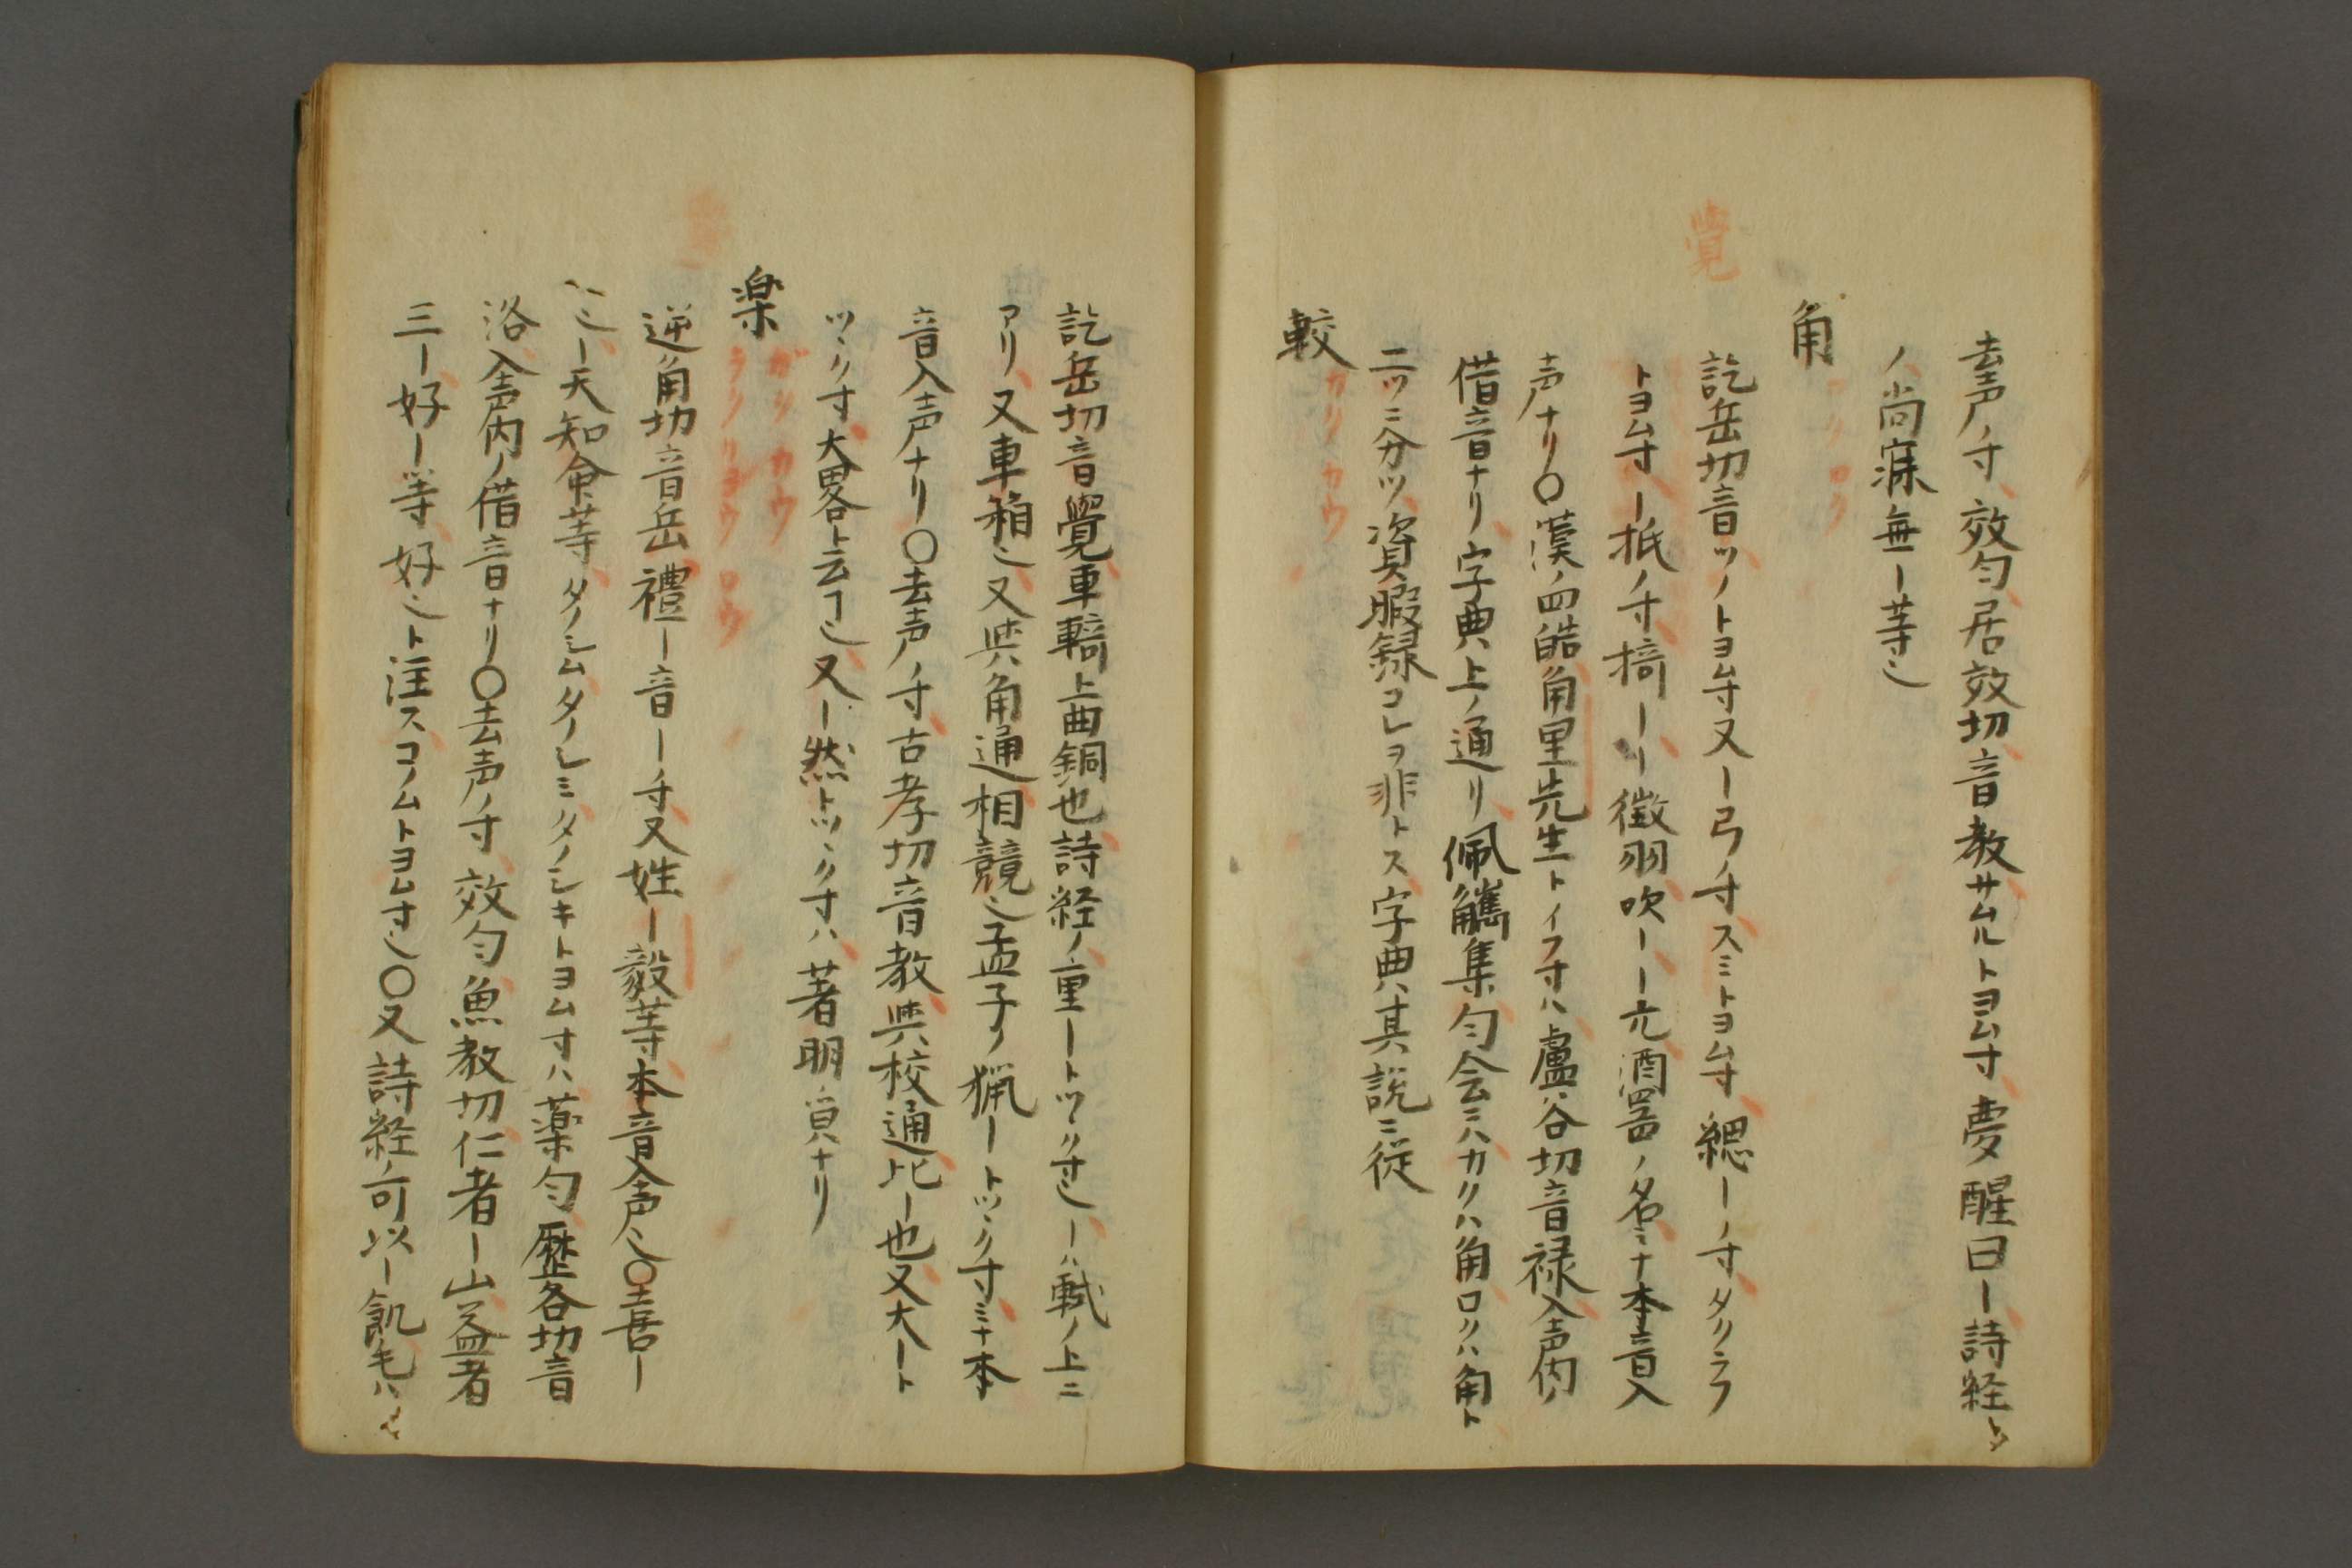 去声ノ寸效匀居效切音教サムルトヨム寸夢醒曰ー詩経
ノ尚寐無ー等〻
覺
角
カク ロク
訖岳切音ツノトヨム寸又ー弓ノ寸スミトヨム寸總ーノ寸タクラフ
トヨム寸ー抵ノ寸掎ーー徴羽吹ーー亢酒器ノ名ミナ本音入
声ナリ〇漢ノ四皓角里先生トイフ寸ハ盧谷切音禄入声内ノ
借音ナリ字典ハ上ノ通リ佩觿集匀会ニハカクハ角ロクハ角ト
二ツニ分ツ資暇録コレヲ非トス字典ハ其説ニ從
較
カク カウ
訖岳切音覺車輢上曲銅也詩経ノ重ートツヽク寸〻ーハ軾ノ上ニ
アリ又車箱〻又與角通相競〻孟子ノ猟ートツヽク寸ミナ本
音入声ナリ〇去声ノ寸古孝切音教與校通比ー也又大ート
ツヽク寸大畧ト云コ〻又ー然トツヽク寸ハ著明ノ皃ナリ
楽
ガク カウ
ラク リヨウ ロウ
逆角切音岳禮ー音ー寸又姓ー毅等本音入声〻〇喜ー
ー天知命等タノシムタノシミタノシキトヨム寸ハ薬匀歴各切音
洛入声内ノ借音ナリ〇去声ノ寸效匀魚教切仁者ー山益者
三ー好ー等好〻ト注スコノムトヨム寸〻〇又詩経ノ可以ー飢毛ハ